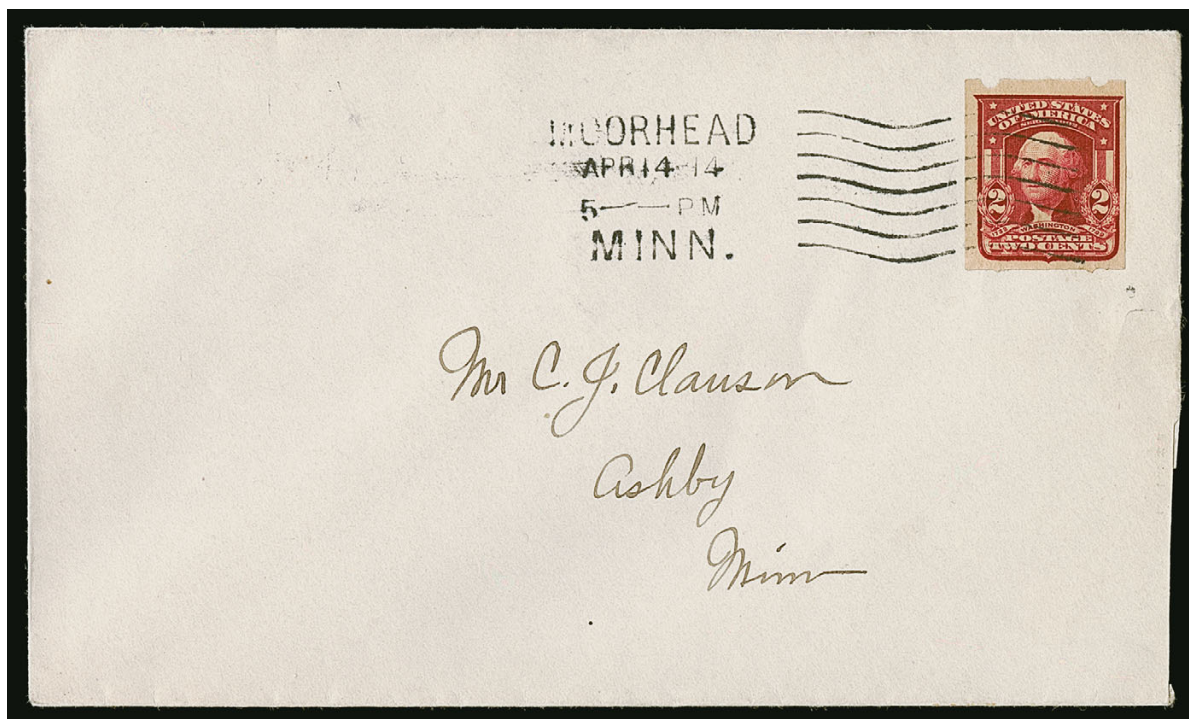 MOORHEAD
APR 14 14
5 — PM
MINN.
UNITED STATES
OF AMERICA
2 2
1732 WASHINGTON 1799
POSTAGE
TWO CENTS
Mr C. J. Clauson
Ashby
Minn